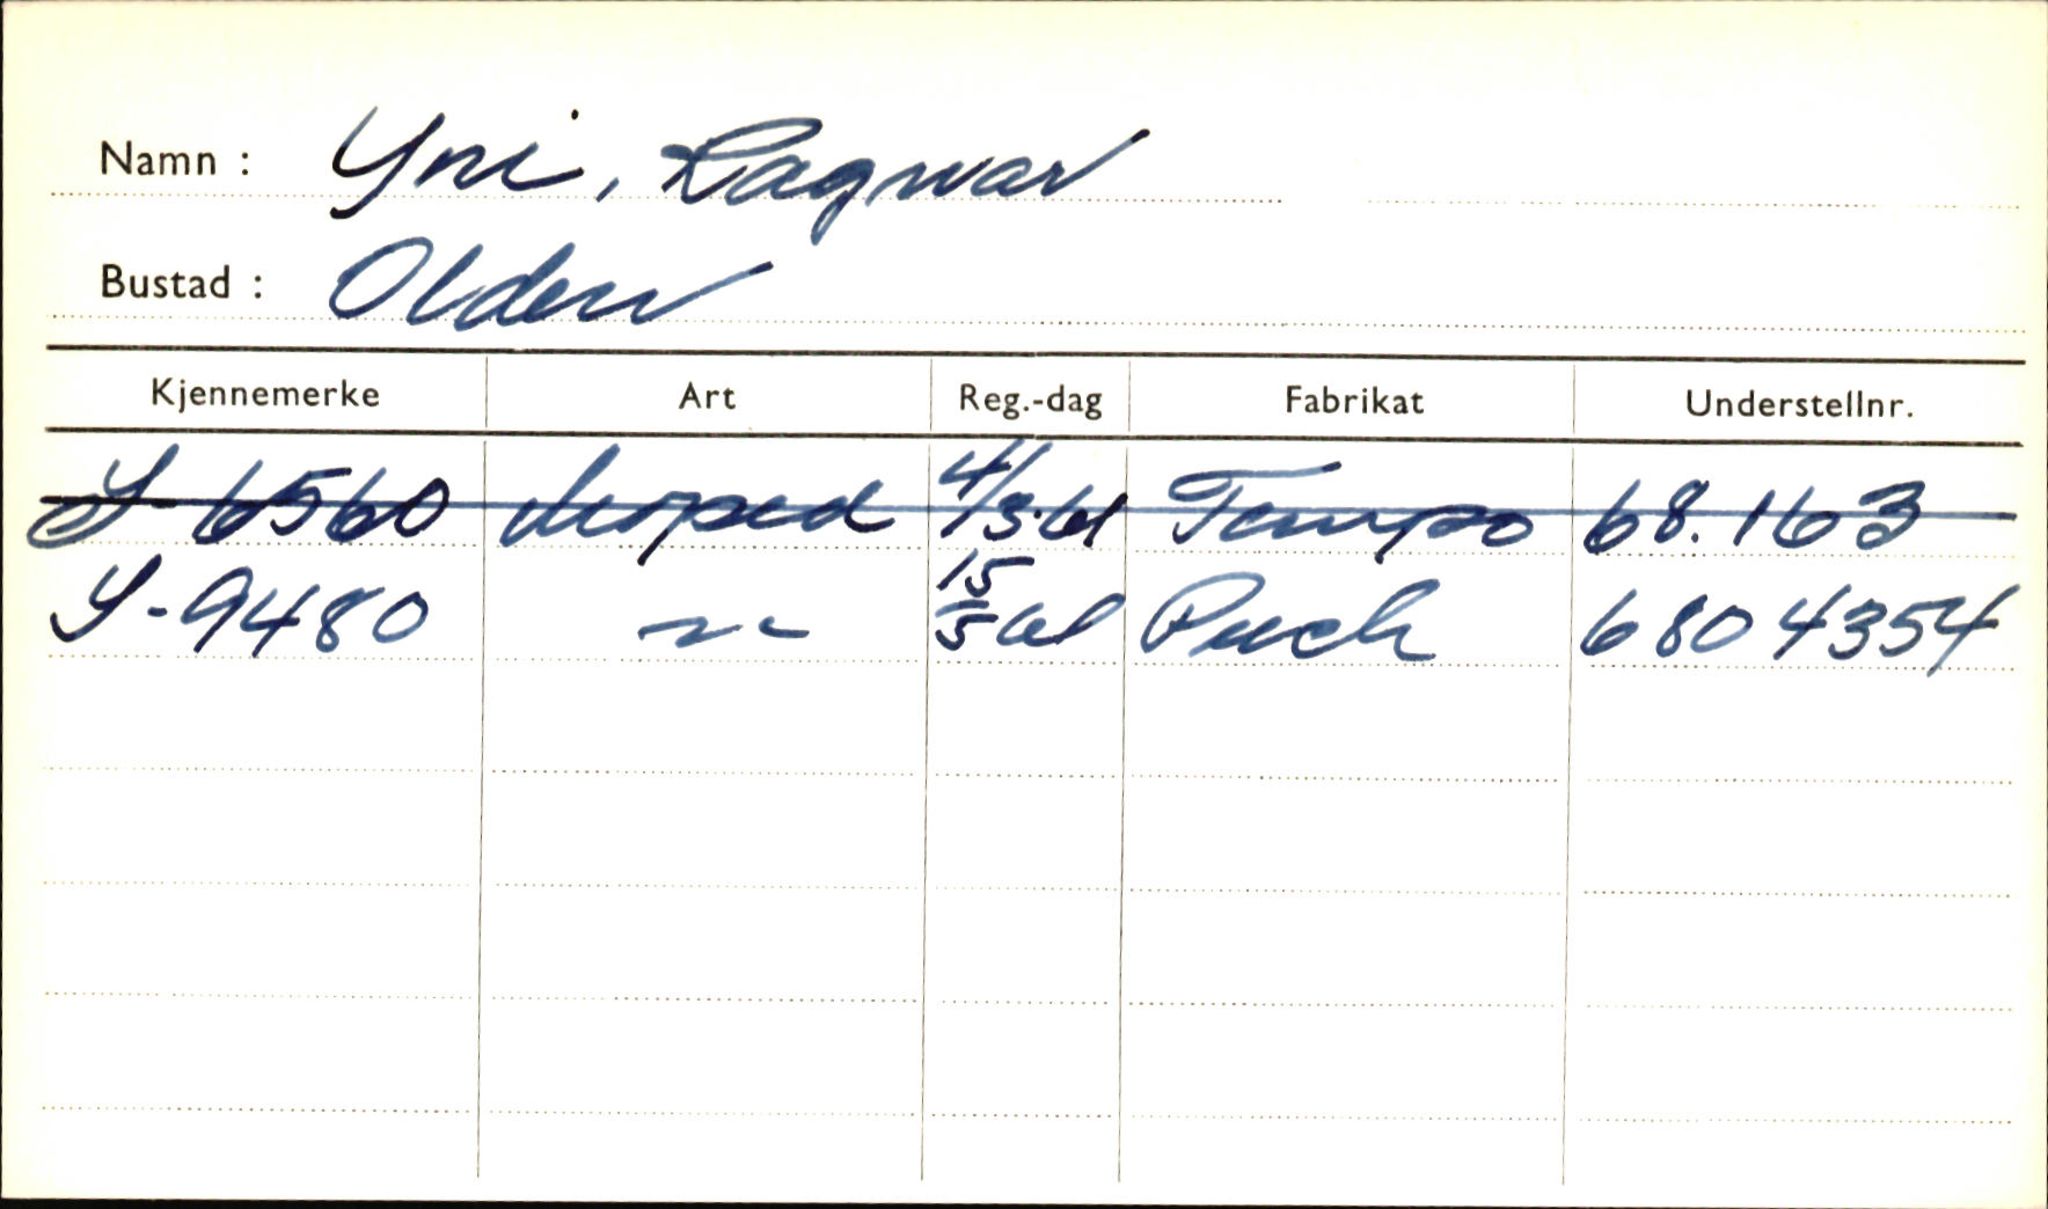 Namn : Yri, Ragnar
Bustad : Olden
Kjennemerke Art Reg.-dag Fabrikat Understellnr.
S-6560 Moped 4/3.61 Tempo 68.163
S-9480 -"- 15/5 61 Puch 6804354